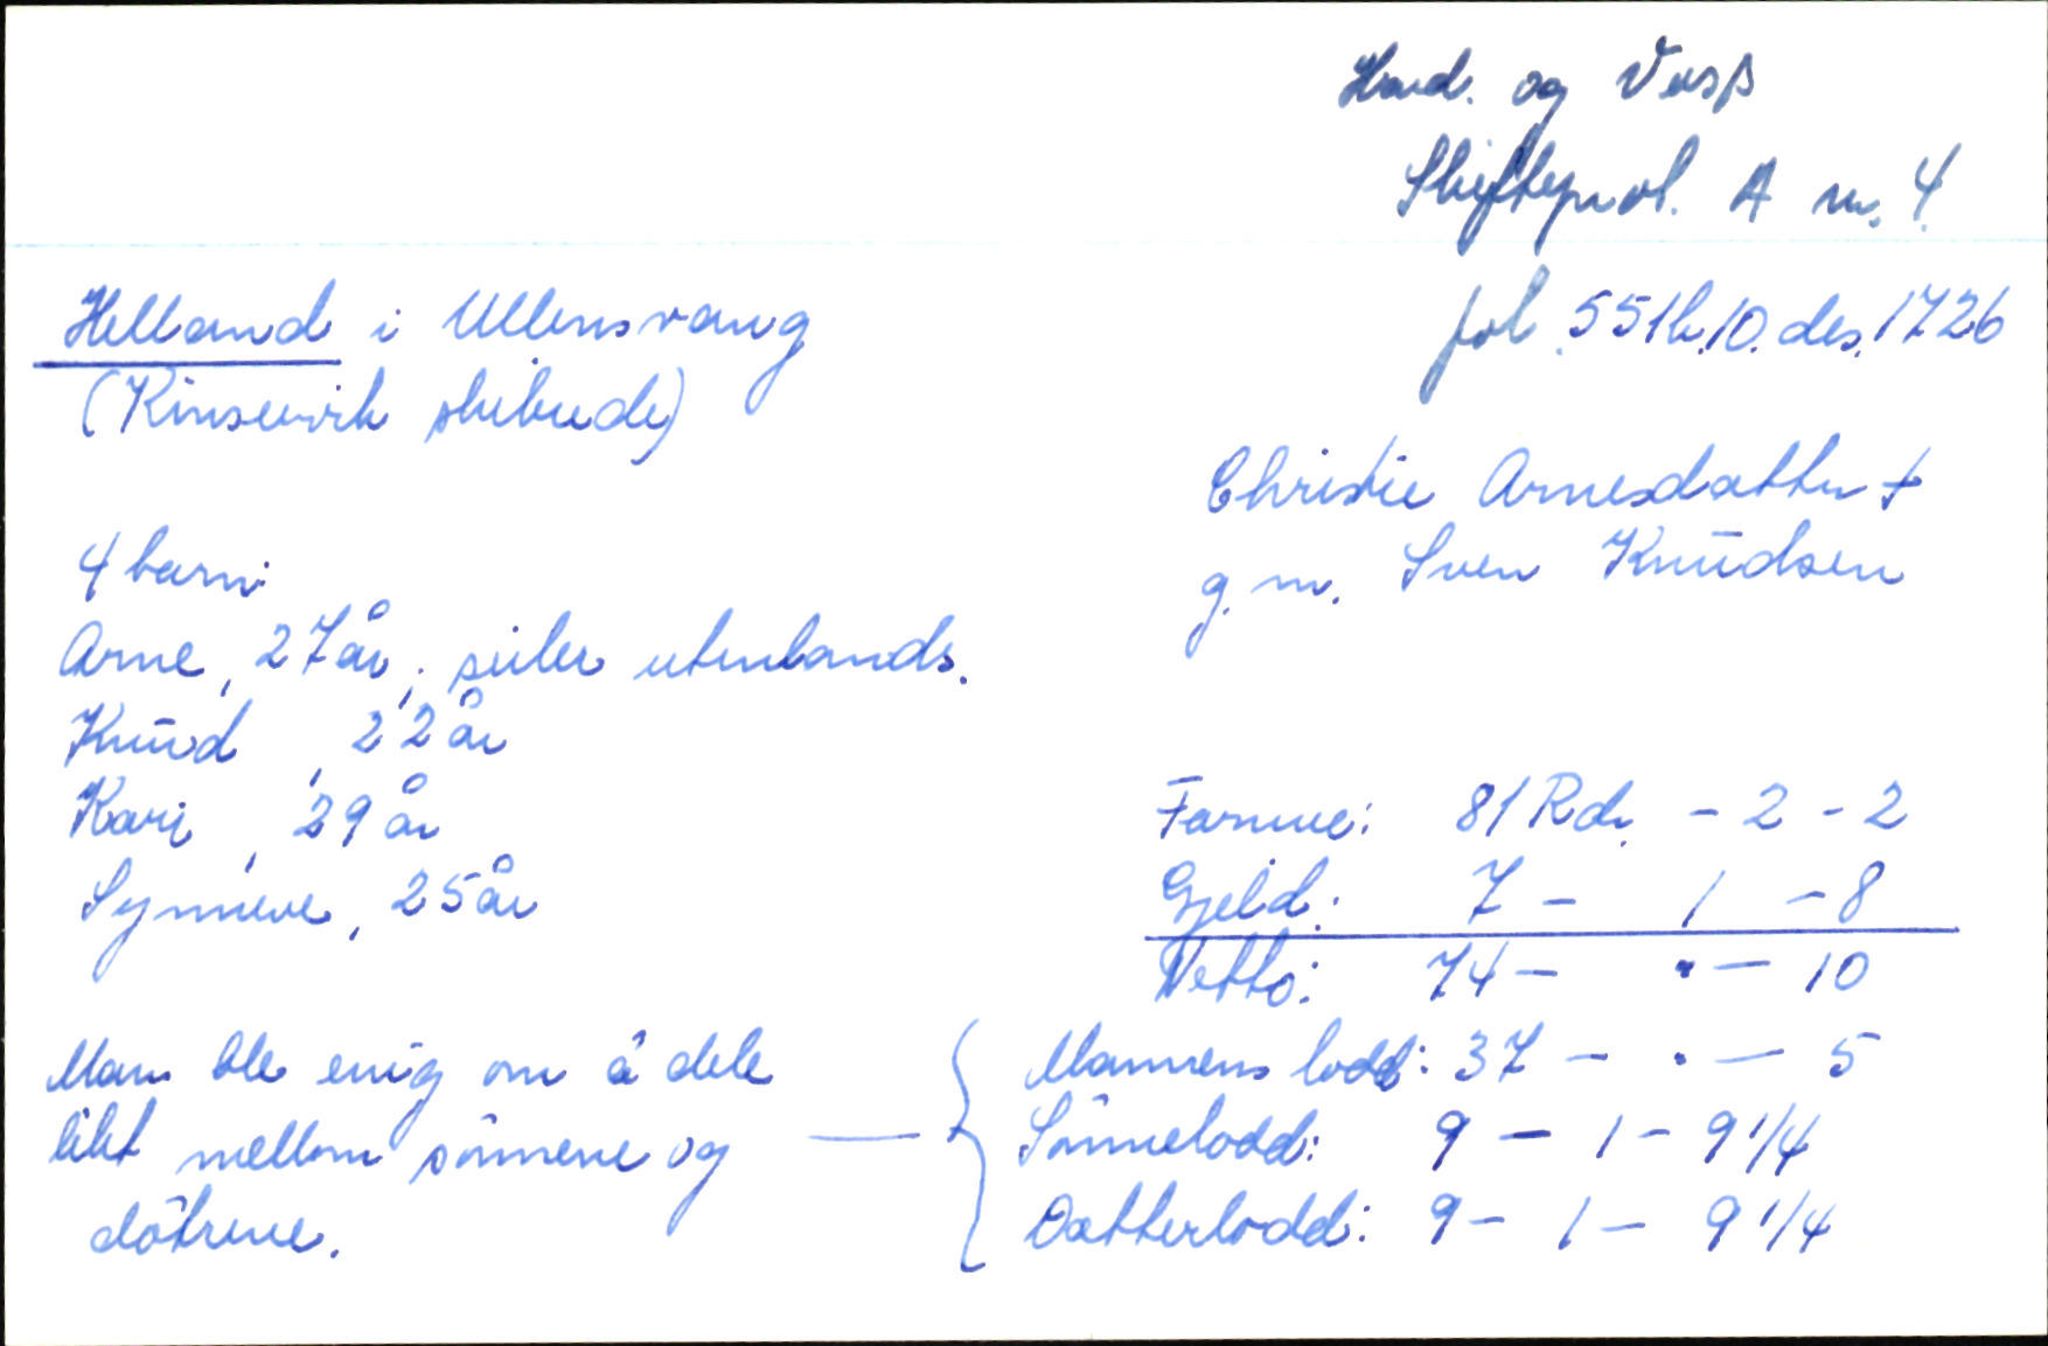 Hard. og Voss
Skifteprot. A nr. 4
fol. 551b, 10. des. 1726
Helland i Ullensvang
(Kinservik skibrede)
Christie Arnesdatter †
g. m. Sven Knudsen
4 barn:
Arne, 27 år, seiler utenlands.
Knud, 22 år
Kari, 29 år
Synneve, 25 år
Formue: 81 Rd. - 2 - 2
Gjeld: 7 - 1 - 8
Netto: 74 - . - 10
Man ble enig om å dele
likt mellom sönnene og
dötrene.
Mannens lodd: 37 - . - 5
Sönnelodd: 9 - 1 - 9 1/4
Datterlodd: 9 - 1 - 9 1/4